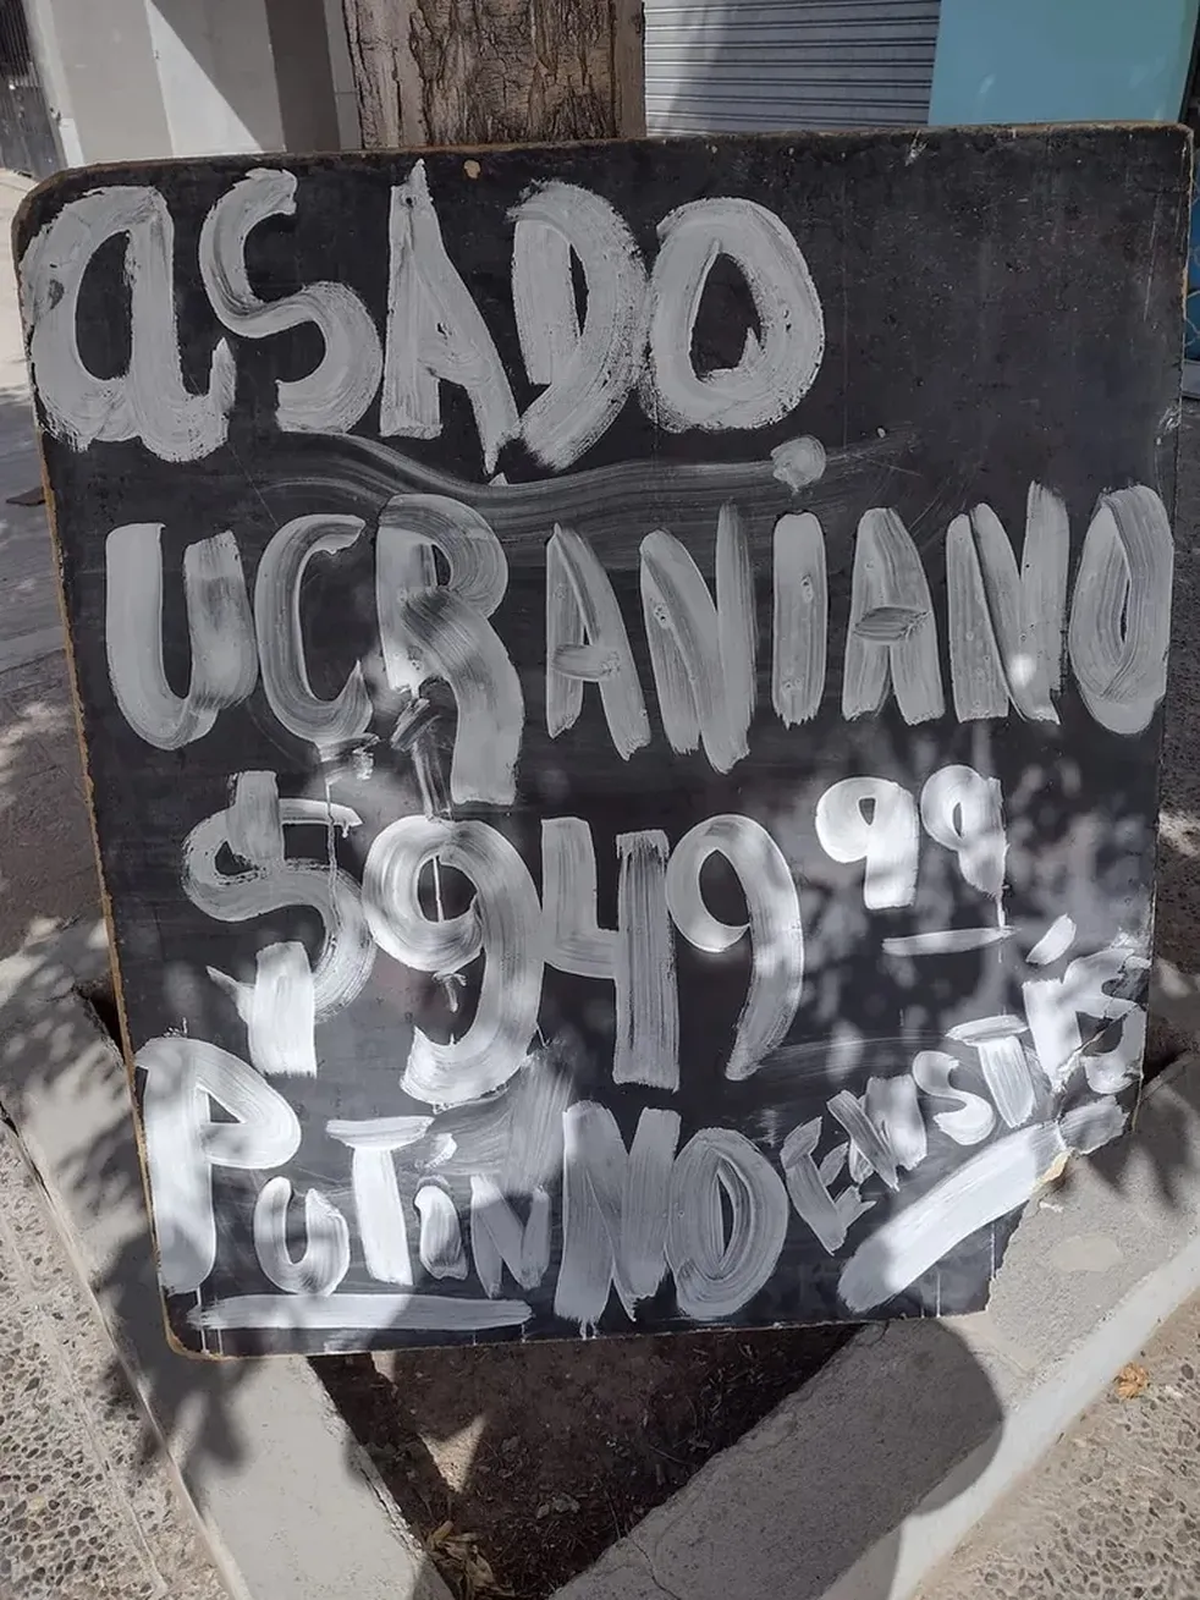 aSADO
UCRANIANO
$949 99
PUTiN NO EXISTÍS